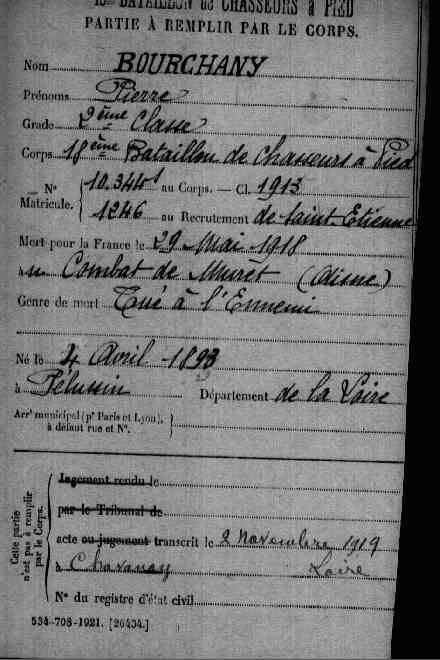 18me BATAILLON de CHASSEURS à PIED
PARTIE À REMPLIR PAR LE CORPS.
Nom BOURCHANY
Prénoms Pierre
Grade 2ème Classe
Corps 18ème Bataillon de Chasseurs à Pied
N° 10.344 au Corps. — Cl. 1913
Matricule. 1246 au Recrutement de Saint. Etienne
Mort pour la France le 29 Mai 1918
à Combat de Muret (Aisne)
Genre de mort Tué à l'Ennemi
Né le 4 Avril 1893
à Pélussin Département de la Loire
Arrt municipal (pr Paris et Lyon),
à défaut rue et N°.
Jugement rendu le
par le Tribunal de
acte ou jugement transcrit le 2 Novembre 1919
à Chavanay Loire
N° du registre d'état civil
Cette partie
n'est pas à remplir
par le Corps.
534-708-1921. [26434.]